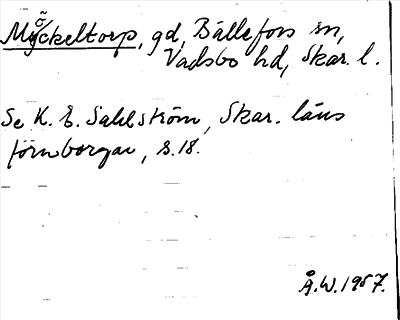 Möckeltorp, gd, Bällefors sn,
Vadsbo hd, Skar. l.
Se K. E. Sahlström, Skar. läns
fornborgar, s. 18.
Å. W. 1957.